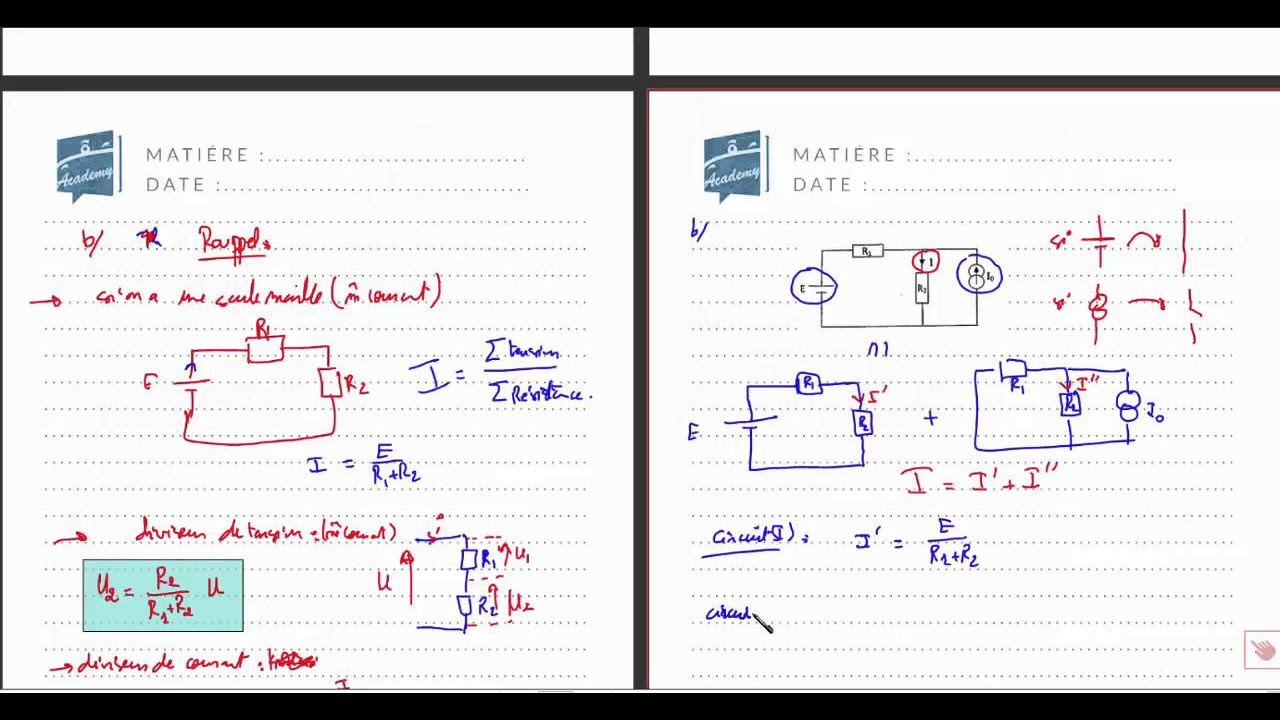 Academy
MATIÈRE :
DATE :
b/ Rappel
→ si on a une seule maille (m̂ courant)
R1
E
R2
I = Σ tension / Σ Résistance.
I = E / R1+R2
→ diviseur de tension : (m̂ courant)
U2 = R2 / R1+R2 U
U
R1
U1
R2
U2
→ diviseur de courant :
I
Academy
MATIÈRE :
DATE :
b/
R1
E
I
R2
I0
si
si
E
R1
I'
R2
+
R1
I''
R2
I0
I = I' + I''
Circuit (I) : I' = E / R1+R2
circuit